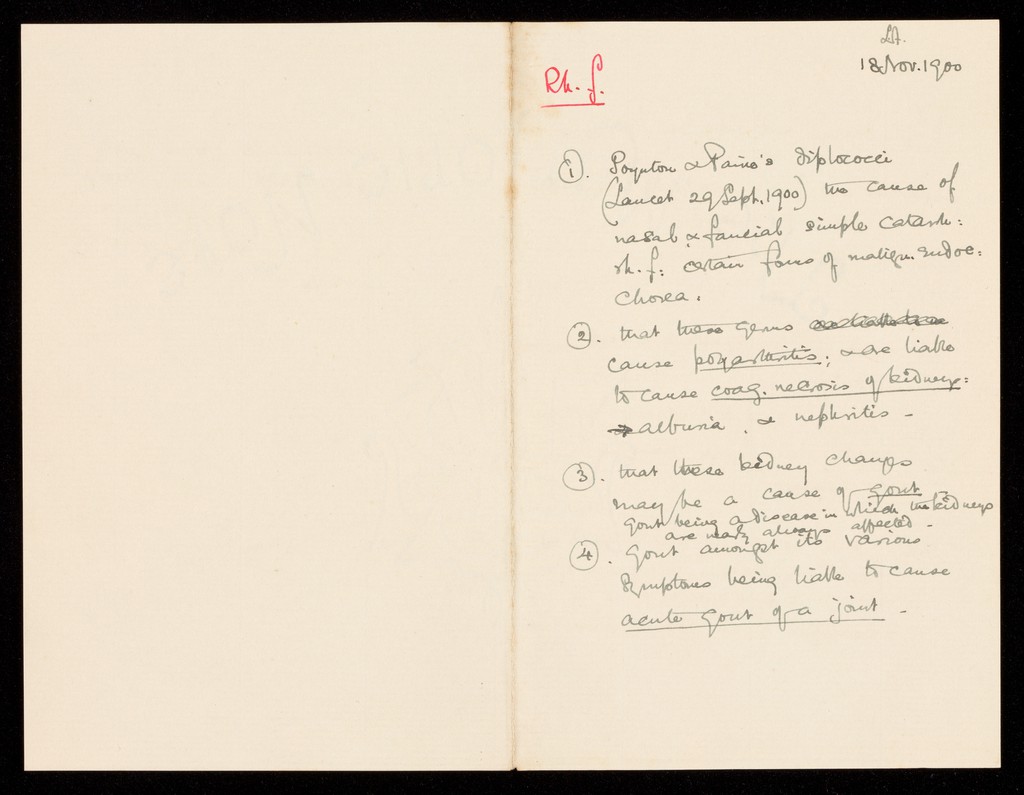 18 Nov. 1900
Rh. f.
(1). Poynton & Paine's diplococci
(Lancet 29 Sept. 1900) the cause of
nasal & faucial simple catarrh:
rh. f: certain forms of malign. endoc:
chorea.
(2). that these germs
cause polyarthritis; & are liable
to cause coag. necrosis of kidneys:
alburia, & nephritis -
(3). that these kidney changes
may be a cause of gout
gout being a disease in which the kidneys
are nearly always affected -
(4). gout amongst its various
symptoms being liable to cause
acute gout of a joint -